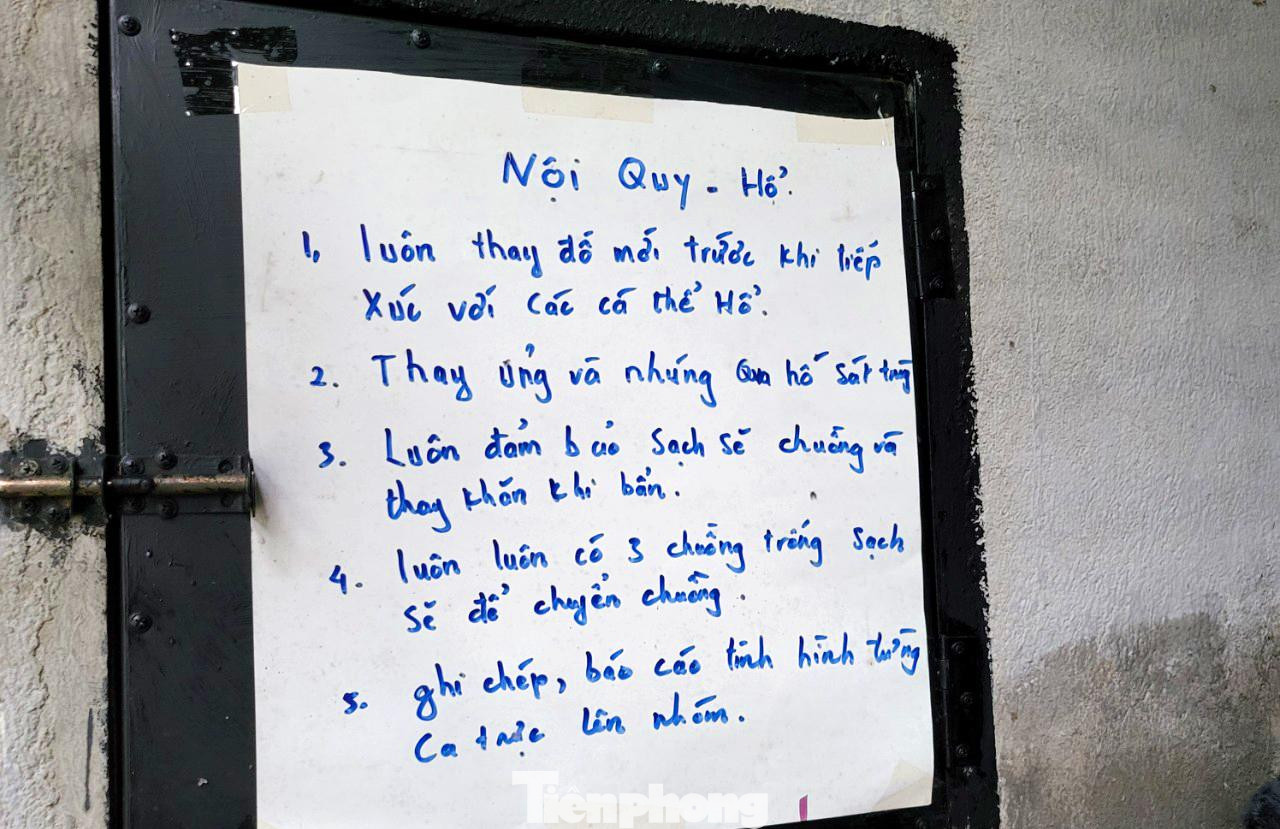 Nội Quy - Hổ.
1, luôn thay đồ mới trước khi tiếp
xúc với các cá thể Hổ.
2. Thay ủng và nhúng qua hố sát trùng
3. Luôn đảm bảo sạch sẽ chuồng và
thay khăn khi bẩn.
4. luôn luôn có 3 chuồng trống sạch
sẽ để chuyển chuồng.
5. ghi chép, báo cáo tình hình từng
Ca trực lên nhóm.
Tiênphong